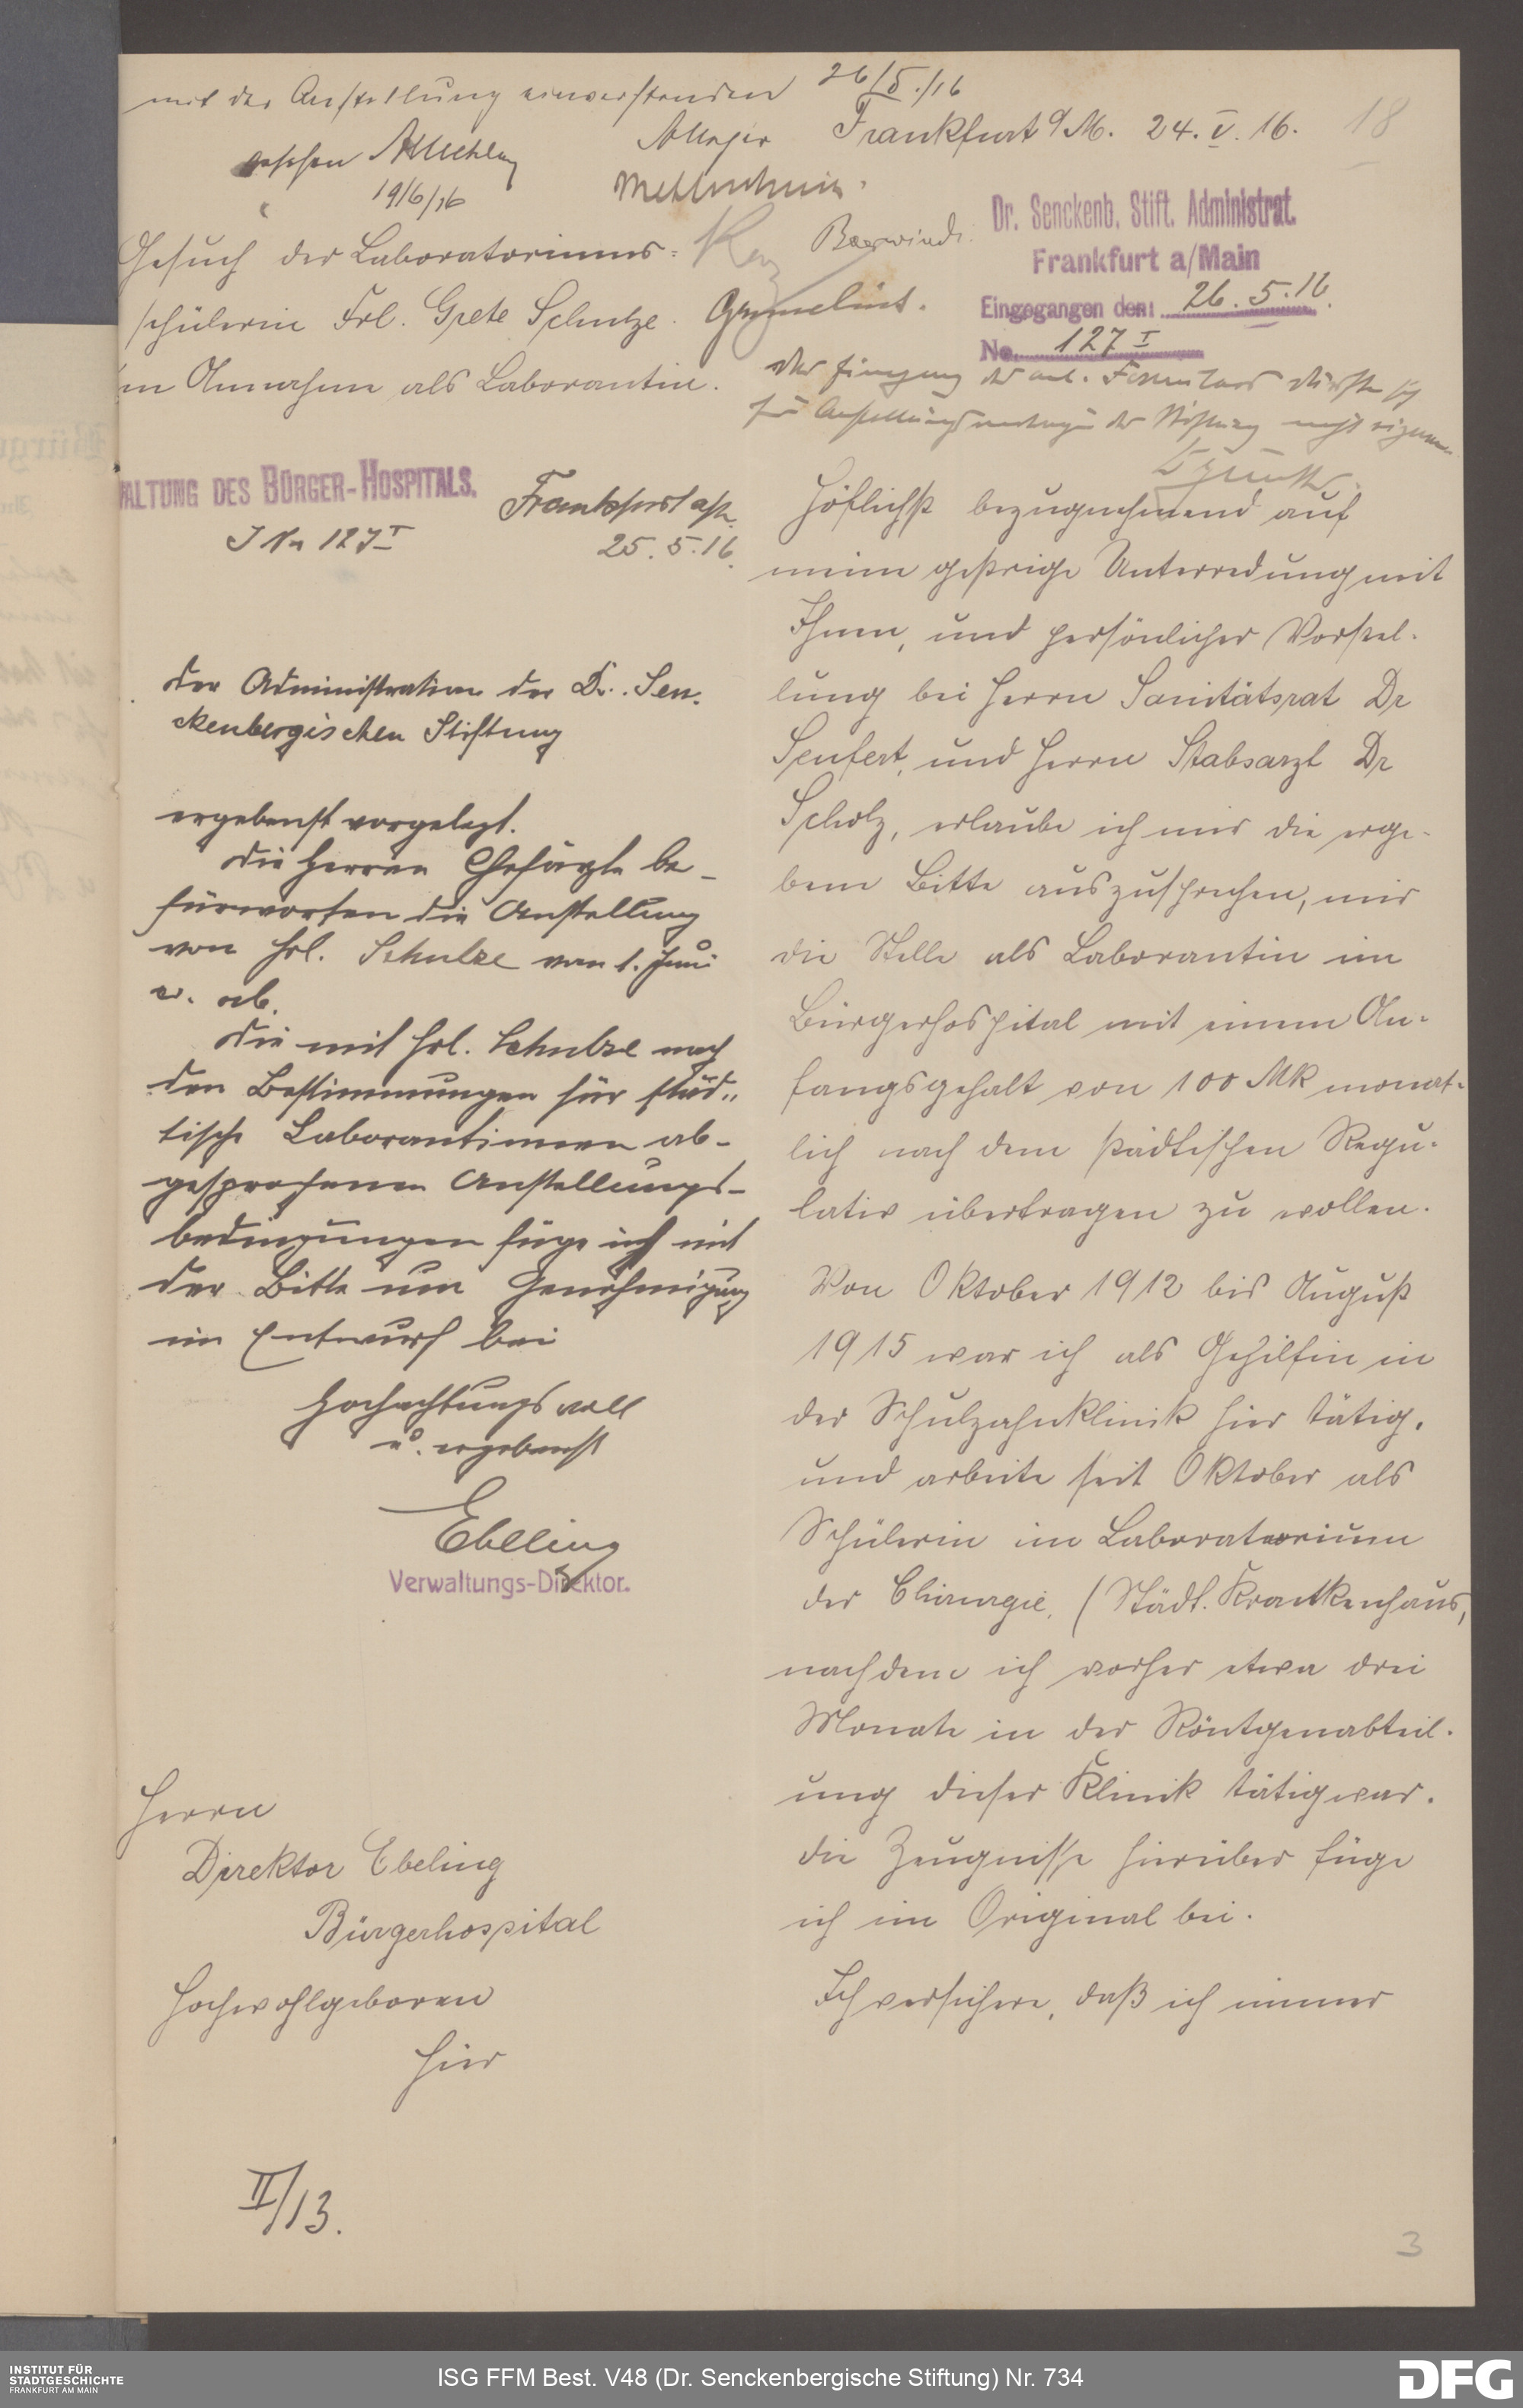 mit der Anstellung einverstanden 26/5./16
gesehen
19/6/16
Frankfurt a/M. 24. V. 16.
18
Gesuch der Laboratoriums=
schülerin Frl. Grete Schulze.
um Annahme als Laborantin.
Dr. Senckenb. Stift. Administrat.
Frankfurt a/Main
Eingegangen den: 26. 5. 16.
No. 127 I
ALTUNG DES BÜRGER-HOSPITALS.
J No 127 I
Frankfurt a/M.
25. 5. 16.
der Administration der Dr. Sen-
ckenbergischen Stiftung
ergebenst vorgelegt.
Die Herren Chefärzte be-
fürworten die Anstellung
von Frl. Schulze vom 1. Juni
cr. ab.
Die mit Frl. Schulze nach
den Bestimmungen für städ-
tische Laborantinnen ab-
gesprochenen Anstellungs-
bedingungen füge ich mit
der Bitte um Genehmigung
im Entwurf bei
Hochachtungsvoll
u. ergebenst
Ebeling
Verwaltungs-Direktor.
Herrn
Direktor Ebeling
Bürgerhospital
Hochwohlgeboren
Hier
II/13.
Höflichst bezugnehmend auf
meine gestrige Unterredung mit
Ihnen, und persönlicher Vorstel-
lung bei Herrn Sanitätsrat Dr
Seufert, und Herrn Stabsarzt Dr
Scholz, erlaube ich mir die erge-
bene Bitte auszusprechen, mir
die Stelle als Laborantin im
Bürgerhospital mit einem An-
fangsgehalt von 100 Mk monat-
lich nach dem städtischen Regu-
lativ übertragen zu wollen.
Von Oktober 1912 bis August
1915 war ich als Gehilfin in
der Schulzahnklinik hier tätig,
und arbeite seit Oktober als
Schülerin im Laboratorium
der Chirurgie, (Städt. Krankenhaus,
nachdem ich vorher etwa drei
Monate in der Röntgenabteil-
ung dieser Klinik tätig war.
Die Zeugnisse hierüber füge
ich im Original bei.
Ich versichere, daß ich immer
3
INSTITUT FÜR
STADTGESCHICHTE
FRANKFURT AM MAIN
ISG FFM Best. V48 (Dr. Senckenbergische Stiftung) Nr. 734
DFG